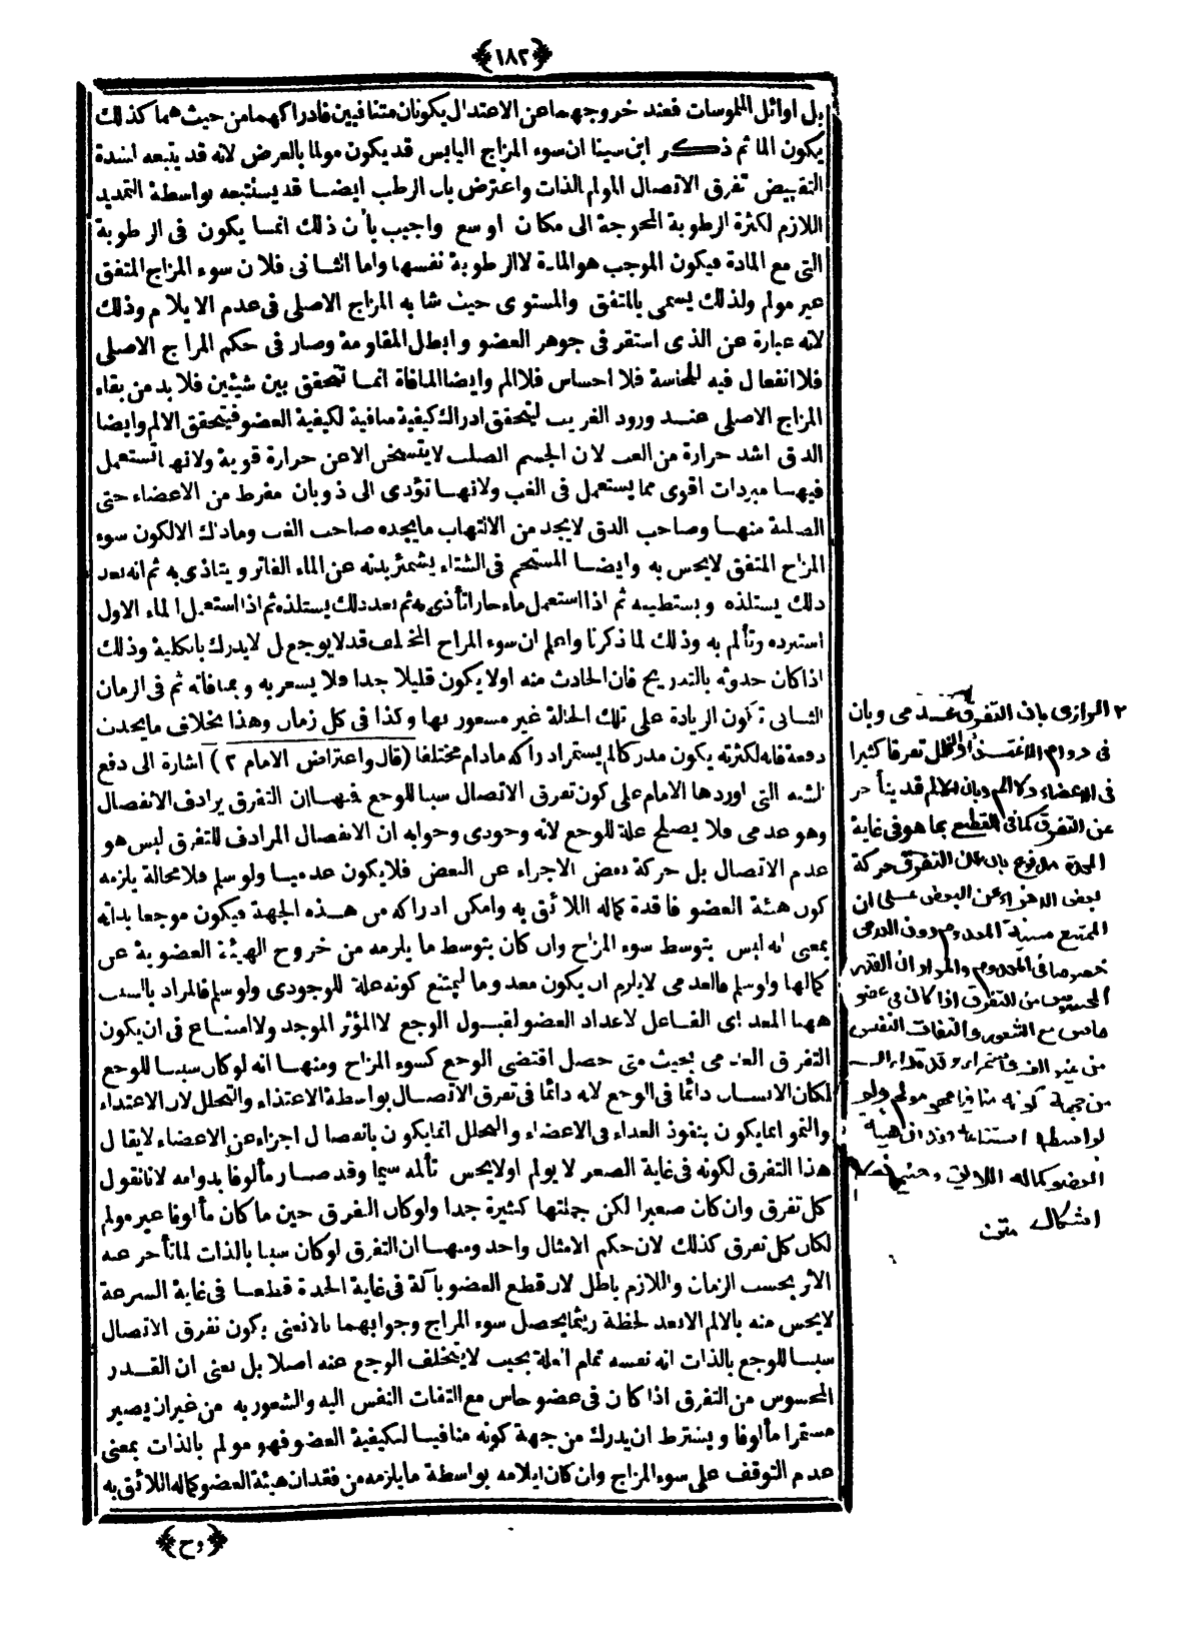 ﴿١٨٢﴾
بل اوائل الملموسات فعند خروجهما عن الاعتدال يكونان متنافيين فادراكهما من حيث هما كذلك
يكون الما ثم ذكر ابن سينا ان سوء المزاج اليابس قد يكون مولما بالعرض لانه قد يتبعه لشدة
التقبيض تفرق الاتصال المولم بالذات واعترض بان الرطب ايضا قد يستتبعه بواسطة التمديد
اللازم لكثرة الرطوبة المحوجة الى مكان اوسع واجيب بأن ذلك انما يكون فى الرطوبة
التى مع المادة فيكون الموجب هو المادة لا الرطوبة نفسها واما الثانى فلان سوء المزاج المتفق
غير مولم ولذلك يسمى بالمتفق والمستوى حيث شابه المزاج الاصلى فى عدم الايلام وذلك
لانه عبارة عن الذى استقر فى جوهر العضو وابطل المقاومة وصار فى حكم المزاج الاصلى
فلا انفعال فيه للحاسة فلا احساس فلا الم وايضا المنافاة انما تتحقق بين شيئين فلا بد من بقاء
المزاج الاصلى عند ورود الغريب ليتحقق ادراك كيفية منافية لكيفية العضو فيتحقق الالم وايضا
الدق اشد حرارة من الغب لان الجسم الصلب لا يتسخن الا عن حرارة قوية ولانها تستعمل
فيها مبردات اقوى مما يستعمل فى الغب ولانها تؤدى الى ذوبان مفرط من الاعضاء حتى
الصلبة منها وصاحب الدق لا يجد من الالتهاب ما يجده صاحب الغب وما ذلك الا لكون سوء
المزاج المتفق لا يحس به وايضا المستحم فى الشتاء يشمئز بدنه عن الماء الفاتر ويتاذى به ثم انه بعد
ذلك يستلذه ويستطيبه ثم اذا استعمل ماء حارا تأذى به ثم بعد ذلك يستلذه ثم اذا استعمل الماء الاول
استبرده وتألم به وذلك لما ذكرنا واعلم ان سوء المزاج المختلف قد لا يوجع بل لا يدرك بالكلية وذلك
اذا كان حدوثه بالتدريج فان الحادث منه اولا يكون قليلا جدا فلا يشعر به وبمنافاته ثم فى الزمان
الثانى تكون الزيادة على تلك الحالة غير مشعور بها وكذا فى كل زمان وهذا بخلاف ما يحدث
دفعة فانه لكثرته يكون مدركا لم يستمر ادراكه مادام مختلفا (قال واعتراض الامام ٢) اشارة الى دفع
الشبه التى اوردها الامام على كون تفرق الاتصال سببا للوجع فمنها ان التفرق يرادف الانفصال
وهو عدمى فلا يصلح علة للوجع لانه وجودى وجوابه ان الانفصال المرادف للتفرق ليس هو
عدم الاتصال بل حركة بعض الاجزاء عن البعض فلا يكون عدميا ولو سلم فلا محالة يلزمه
كون هيئة العضو فاقدة كماله اللائق به وامكن ادراكه من هذه الجهة فيكون موجعا بذاته
بمعنى انه ليس بتوسط سوء المزاج وان كان بتوسط ما يلزمه من خروج الهيئة العضوية عن
كمالها ولو سلم فالعدمى لا يلزم ان يكون معدوما ليمتنع كونه علة للوجودى ولو سلم فالمراد بالسبب
ههنا المعد اى الفاعل لاعداد العضو لقبول الوجع لا المؤثر الموجد ولا امتناع فى ان يكون
التفرق العدمى بحيث متى حصل اقتضى الوجع كسوء المزاج ومنها انه لو كان سببا للوجع
لكان الانسان دائما فى الوجع لانه دائما فى تفرق الاتصال بواسطة الاغتذاء والتحلل لان الاغتذاء
والنمو انما يكون بنفوذ الغذاء فى الاعضاء والتحلل انما يكون بانفصال اجزاء عن الاعضاء لا يقال
هذا التفرق لكونه فى غاية الصغر لا يولم او لا يحس تألمه سيما وقد صار مألوفا بدوامه لانا نقول
كل تفرق وان كان صغيرا لكن جملتها كثيرة جدا ولو كان التفرق حين ما كان مألوفا غير مولم
لكان كل تفرق كذلك لان حكم الامثال واحد ومنها ان التفرق لو كان سببا بالذات لما تأخر عنه
الاثر بحسب الزمان واللازم باطل لان قطع العضو بآلة فى غاية الحدة قطعا فى غاية السرعة
لا يحس منه بالالم الا بعد لحظة ريثما يحصل سوء المزاج وجوابهما بالانعنى بكون تفرق الاتصال
سببا للوجع بالذات انه نفسه تمام العلة بحيث لا يتخلف الوجع عنه اصلا بل نعنى ان القدر
المحسوس من التفرق اذا كان فى عضو حاس مع التفات النفس اليه والشعور به من غير ان يصير
مستمرا مألوفا ويشترط ان يدرك من جهة كونه منافيا لكيفية العضو فهو مولم بالذات بمعنى
عدم التوقف على سوء المزاج وان كان ايلامه بواسطة ما يلزمه من فقدان هيئة العضو كماله اللائق به
﴿وح﴾
٢ الرازى بان التفرق عدمى وبان
فى دوام الاغتذاء والتحلل تفرقا كثيرا
فى الاعضاء ولا الم وبان الالم قد يتأخر
عن التفرق كما فى القطع بما هو فى غاية
الحدة مدفوع بان التفرق حركة
بعض الاجزاء عن البعض على ان
الممتنع سببية المعدوم دون العدمى
خصوصا فى المعدوم والمراد ان القدر
المحسوس من التفرق اذا كان فى عضو
حاس مع الشعور والتفات النفس
من غير استمرار
من جهة كونه منافيا فهو مولم ولو
بواسطة هيئة
العضو كماله اللائق وحينئذ
اشكال متن